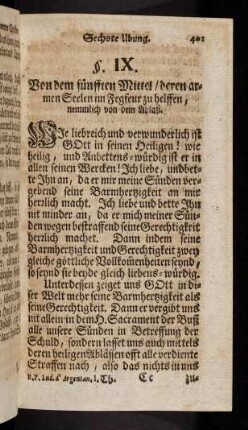 Sechste Ubung. 401
§. IX.
Von dem fünfften Mittel / deren ar-
men Seelen im Fegfeur zu helffen /
nemmlich von dem Ablaß.
WIe liebreich und verwunderlich ist
GOtt in seinen Heiligen! wie
heilig / und Anbettens-würdig ist er in
allen seinen Wercken! Ich liebe / und bet-
te Ihn an / da er mir meine Sünden ver-
gebend seine Barmhertzigkeit an mir
herrlich macht. Ich liebe und bette Ihn
nit minder an / da er mich meiner Sün-
den wegen bestraffend seine Gerechtigkeit
herrlich machet. Dann indem seine
Barmhertzigkeit und Gerechtigkeit zwey
gleiche göttliche Vollkommenheiten seynd /
so seynd sie beyde gleich liebens-würdig.
Unterdessen zeiget uns GOtt in di-
ser Welt mehr seine Barmhertzigkeit als
seine Gerechtigkeit. Dann er vergibt uns
nit allein in dem H. Sacrament der Buß
alle unsere Sünden in Betreffung der
Schuld / sondern lasset uns auch mittels
deren heiligen Ablässen offt alle verdiente
Straffen nach / also das nichts in uns
R.P. Lud. d' Argentan, I. Th. Cc zu-